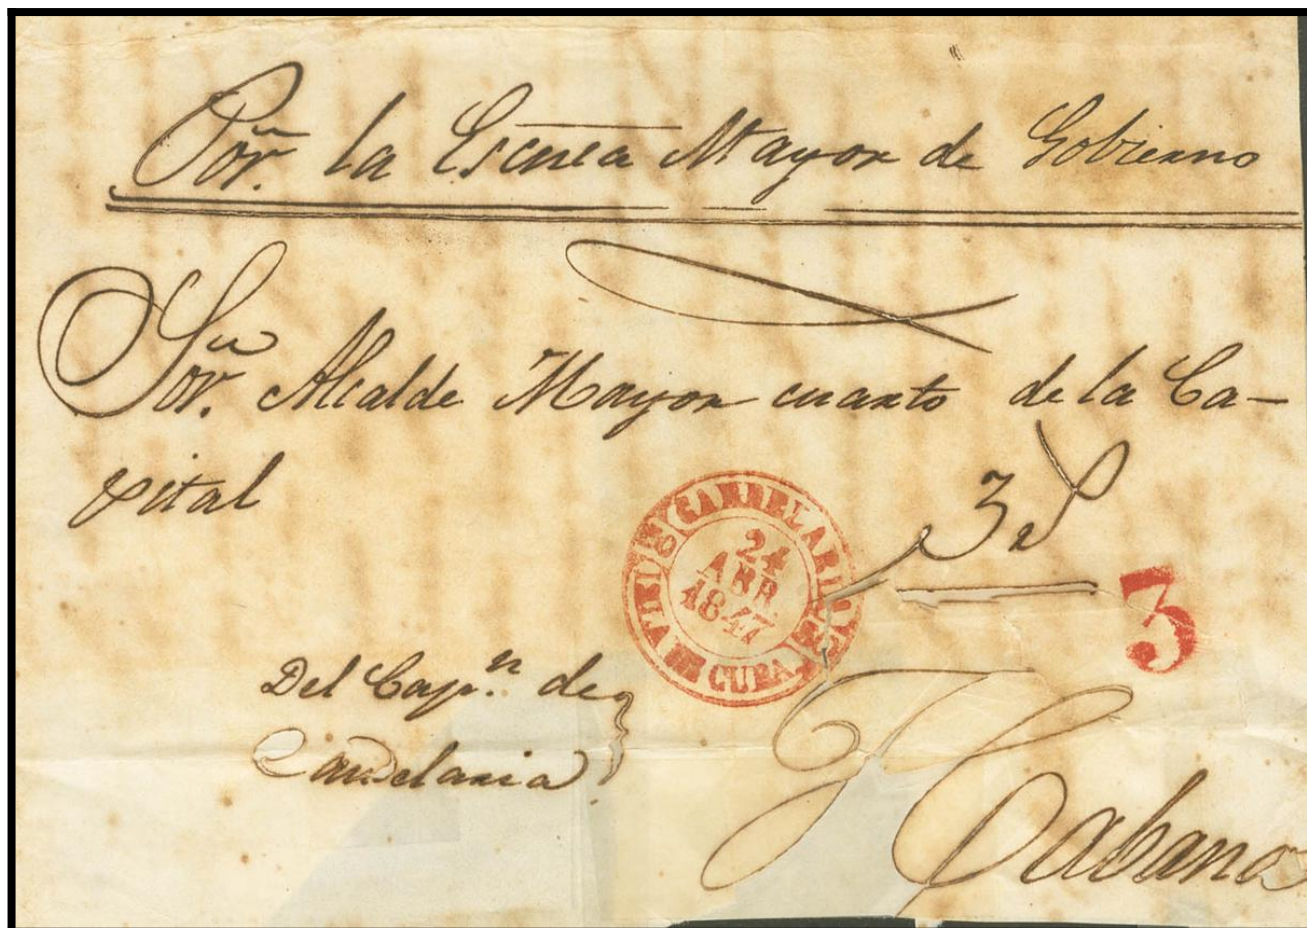 Por. la Escnia Mayor de Gobierno
Sor. Alcalde Mayor cuarto de la Ca-
pital
3
3
24
ABR
1847
YSLA DE CUBA
Del Cap.n de
Candelaria
Habana